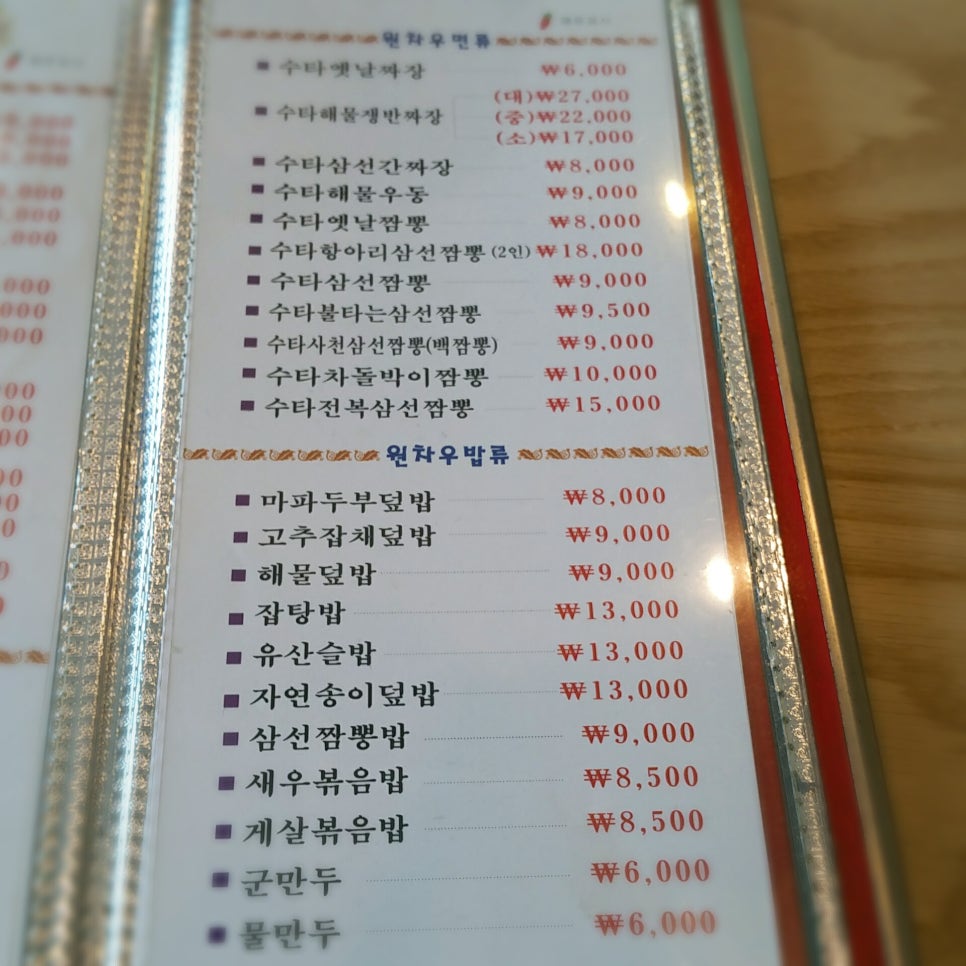 원차우면류
수타옛날짜장 ₩6,000
(대)₩27,000
수타해물쟁반짜장 (중)₩22,000
(소)₩17,000
수타삼선간짜장 ₩8,000
수타해물우동 ₩9,000
수타옛날짬뽕 ₩8,000
수타항아리삼선짬뽕 (2인) ₩18,000
수타삼선짬뽕 ₩9,000
수타불타는삼선짬뽕 ₩9,500
수타사천삼선짬뽕(백짬뽕) ₩9,000
수타차돌박이짬뽕 ₩10,000
수타전복삼선짬뽕 ₩15,000
원차우밥류
마파두부덮밥 ₩8,000
고추잡채덮밥 ₩9,000
해물덮밥 ₩9,000
잡탕밥 ₩13,000
유산슬밥 ₩13,000
자연송이덮밥 ₩13,000
삼선짬뽕밥 ₩9,000
새우볶음밥 ₩8,500
게살볶음밥 ₩8,500
군만두 ₩6,000
물만두 ₩6,000